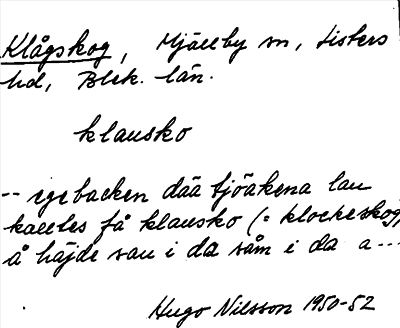 Klågskog, Mjällby sn, Listers
hd, Blek. län.
klausko
-- egebacken däá tjöákena lau
kalltes få klausko (= klockeskog)
å häjde vau i da såm i da a---
Hugo Nilsson 1950-52